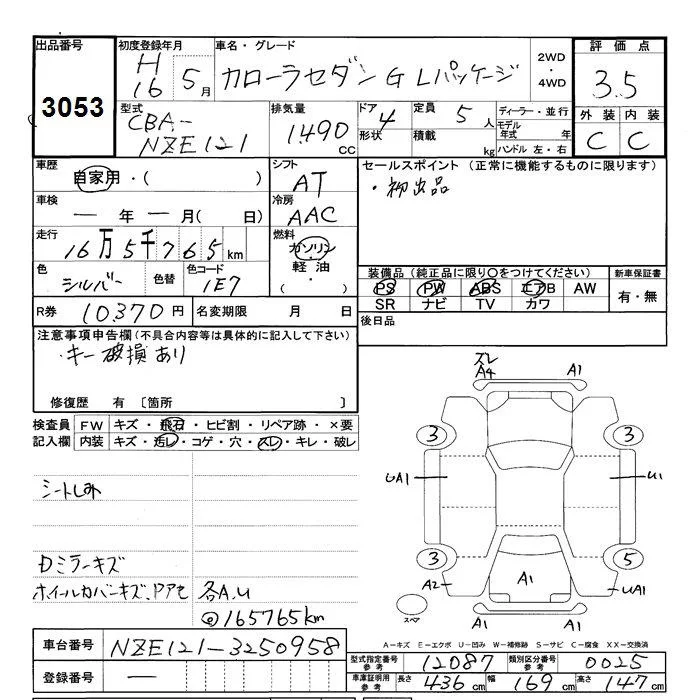 出品番号 3053
初度登録年月 H16 5月
車名・グレード カローラセダン G Lパッケージ
2WD・4WD
評価点 3.5
外装 C 内装 C
型式 CBA- NZE121
排気量 1490 CC
ドア 4 形状
定員 5人 積載 kg
ディーラー・並行
モデル年式 年
ハンドル 左・右
車歴 自家用・( )
シフト AT
セールスポイント (正常に機能するものに限ります)
・初出品
車検 ― 年 ― 月( 日)
冷房 AAC
走行 16万5千765km
燃料 ガソリン・軽油・( )
色 シルバー 色替 色コード 1E7
装備品(純正品に限り○をつけてください) 新車保証書
PS PW ABS エアB AW 有・無
SR ナビ TV カワ
R券 10370円 名変期限 月 日
後日品
注意事項申告欄(不具合内容等は具体的に記入して下さい)
・キー破損あり
修復歴 有〔箇所 〕
検査員記入欄
FW キズ・飛石・ヒビ割・リペア跡・×要
内装 キズ・汚レ・コゲ・穴・スレ・キレ・破レ
シートしみ
Dミラーキズ
ホイールカバーキズ、ドアモ 各A,U
@165765km
ズレ
A4 A1
3 3
UA1 U1
3 5
A2 A1 UA1
スペア
A1 A1
A-キズ E-エクボ U-凹み W-補修跡 S-サビ C-腐食 XX-交換済
車台番号 NZE121-3250958
登録番号 ―
型式指定番号 参考 12087 類別区分番号 参考 0025
車庫証明用 参考 長さ 436 幅 169 高さ 147cm